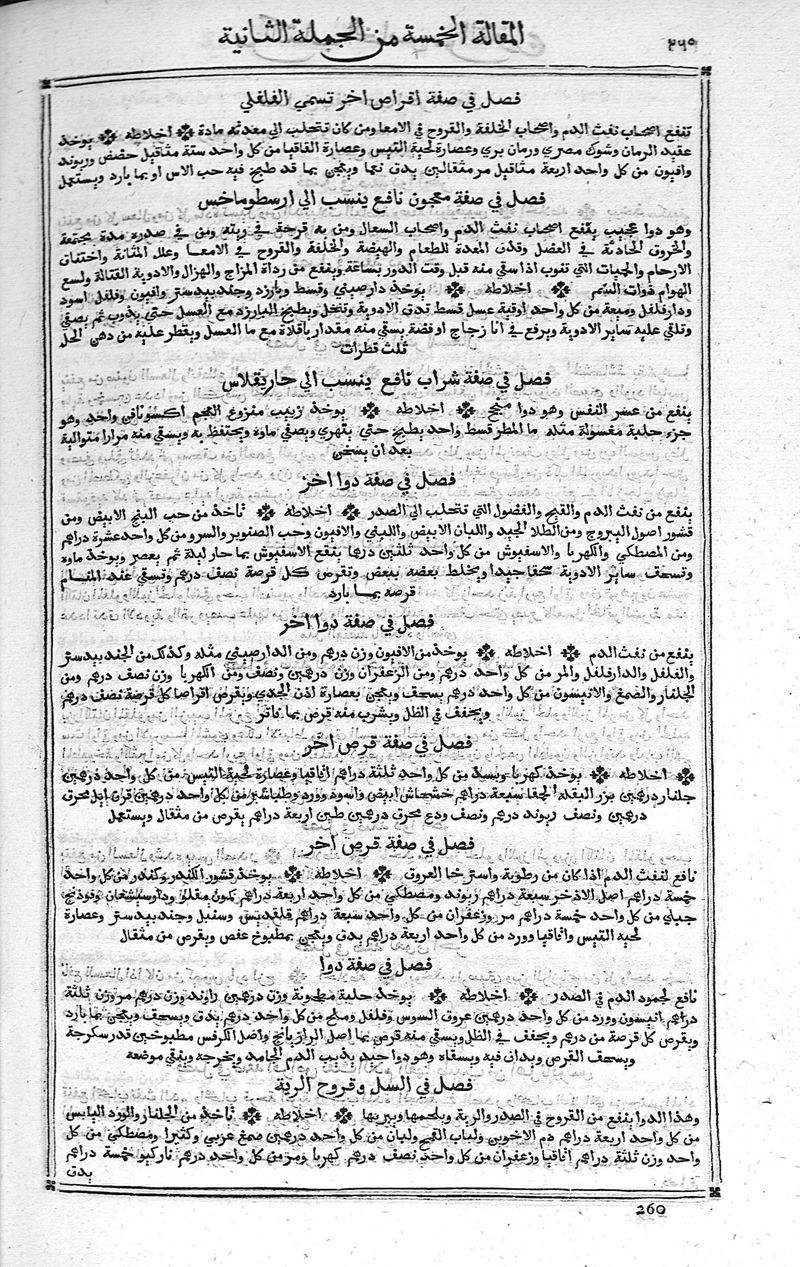 ٢٦٠ المقالة الخمسة من الجملة الثانية
فصل في صفة اقراص اخر تسمي الفلفلي
تنفع اصحاب نفث الدم واصحاب الخلفة والقروح في الامعا ومن كان تتحلب الي معدته مادة اخلاطه يوخذ
عقيد الرمان وشوك مصري ورمان بري وعصارة لحية التيس وعصارة القاقيا من كل واحد ستة مثاقيل حضض وريوند
وافيون من كل واحد اربعة مثاقيل مر مثقالين يدق نعما ويعجن بما قد طبخ فيه حب الاس او بما بارد ويستعمل
فصل في صفة معجون نافع ينسب الي ارسطوماخس
وهو دوا عجيب ينفع اصحاب نفث الدم واصحاب السعال ومن به قرحة في ريته ومن في صدره مدة مجتمعة
والخروق الحادثة في العضل وقذف المعدة للطعام والهيضة والخلفة والقروح في الامعا وعلل المثانة واختناق
الارحام والحميات التي تنوب اذا سقي منه قبل وقت الدور بساعة وينفع من رداة المزاج والهزال والادوية القتالة ولسع
الهوام ذوات السم اخلاطه يوخذ دارصيني وقسط وبارزد وجندبيدستر وافيون وفلفل اسود
ودارفلفل وميعة من كل واحد اوقية عسل قسط تدق الادوية وتنخل ويطبخ البارزد مع العسل حتي يذوب ثم يصفي
وتلقي عليه ساير الادوية ويرفع في انا زجاج او فضة يسقي منه مقدار باقلاة مع ما العسل ويقطر عليه من دهن الحل
ثلث قطرات
فصل في صفة شراب نافع ينسب الي حاريقلاس
ينفع من عسر النفس وهو دوا اخلاطه يوخذ زبيب منزوع العجم اكسونافن واحد وهو
جزء حلبة مغسولة مثله ما المطر قسط واحد يطبخ حتي يتهري ويصفي ماوه ويحتفظ به ويسقي منه مرارا متوالية
بعد ان يسخن
فصل في صفة دوا اخر
ينفع من نفث الدم والقيح والفضول التي تتحلب الي الصدر اخلاطه تاخذ من حب البنج الابيض ومن
قشور اصول اليبروح ومن الطلا الجيد واللبان الابيض واللبني والافيون وحب الصنوبر والسرو من كل واحد عشرة دراهم
ومن المصطكي والكهربا والاسفيوش من كل واحد ثلثين درهما ينقع الاسفيوش بما حار ليلة ثم يعصر ويوخذ ماوه
وتسحق ساير الادوية سحقا جيدا ويخلط بعضه ببعض وتقرص كل قرصة نصف درهم وتسقي عند المنام
قرصة بما بارد
فصل في صفة دوا اخر
ينفع من نفث الدم اخلاطه يوخذ من الافيون وزن درهم ومن الدارصيني مثله وكذلك من الجندبيدستر
والفلفل والدارفلفل والمر من كل واحد درهم ومن الزعفران وزن درهمين ونصف ومن الكهربا وزن نصف درهم ومن
الجلنار والصمغ والانيسون من كل واحد درهم يسحق ويعجن بعصارة اذن الجدي ويقرص اقراصا كل قرصة نصف درهم
ويجفف في الظل ويشرب منه قرص بما فاتر
فصل في صفة قرص اخر
اخلاطه يوخذ كهربا وبسد من كل واحد ثلثة دراهم اقاقيا وعصارة لحية التيس من كل واحد درهمين
جلنار درهمين بزر البقلة الحمقا سبعة دراهم خشخاش ابيض واسود وورد وطباشير من كل واحد درهمين قرن ايل محرق
درهمين ونصف ريوند درهم ونصف ودع محرق درهمين طين اربعة دراهم يقرص من مثقال ويستعمل
فصل في صفة قرص اخر
نافع لنفث الدم اذا كان من رطوبة واسترخا العروق اخلاطه يوخذ قشور الكندر وكندر من كل واحد
خمسة دراهم اصل الاذخر سبعة دراهم ريوند ومصطكي من كل واحد اربعة دراهم كمون مقلو ودارسيشعان وفوذنج
جبلي من كل واحد خمسة دراهم مر وزعفران من كل واحد سبعة دراهم قلقديس وسنبل وجندبيدستر وعصارة
لحية التيس واقاقيا وورد من كل واحد اربعة دراهم يدق ويعجن بمطبوخ عفص ويقرص من مثقال
فصل في صفة دوا
نافع لجمود الدم في الصدر اخلاطه يوخذ حلبة مطحونة وزن درهمين راوند وزن درهم مر وزن ثلثة
دراهم انيسون وورد من كل واحد درهمين عروق السوس وفلفل وملح من كل واحد درهم يدق ويسحق ويعجن بما بارد
ويقرص كل قرصة من درهم ويجفف في الظل ويسقي منه قرص بما اصل الرازيانج واصل الكرفس مطبوخين قدر سكرجة
ويسحق القرص ويداف فيه ويسقاه وهو دوا جيد يذيب الدم الجامد ويخرجه وينقي موضعه
فصل في السل وقروح الرية
وهذا الدوا ينفع من القروح في الصدر والرية ويلحمها ويبريها اخلاطه تاخذ من الجلنار والورد اليابس
من كل واحد اربعة دراهم دم الاخوين ولباب القمح ولبان من كل واحد درهمين صمغ عربي وكثيرا ومصطكي من كل
واحد وزن ثلثة دراهم اقاقيا وزعفران من كل واحد نصف درهم كهربا ومر من كل واحد درهم ناركيو خمسة دراهم
يدق
260